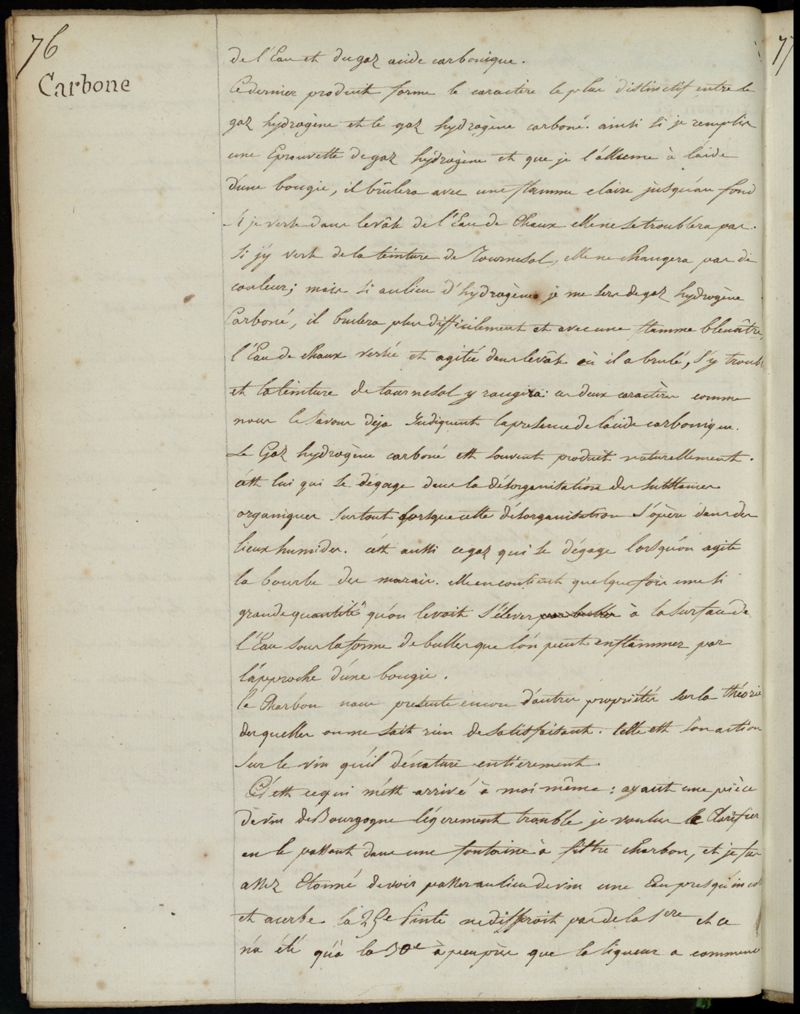 76
77
Carbone
de l'Eau et du gaz acide carbonique.
Ce dernier produit forme le caractère le plus distinctif entre le
gaz hydrogène et le gaz hydrogène carboné. ainsi si je remplis
une Eprouvette de gaz hydrogène et que je l'allume à l'aide
d'une bougie, il brûlera avec une flamme claire jusqu'au fond
si je verse dans le vâse de l'Eau de Chaux elle ne se troublera pas.
Si j'y verse de la teinture de Tournesol, elle ne changera pas de
couleur; mais si au lieu d'hydrogène je me sers de gaz hydrogène
Carboné, il brulera plus difficilement et avec une flamme bleuâtre,
l'Eau de chaux versée et agitée dans le vâse où il a brulé, s'y troubl
et la teinture de tournesol y rougira ces deux caractères comme
nous le savons déja Indiquent la présence de l'acide carbonique.
Le Gaz hydrogène carboné est souvent produit naturellement.
c'est lui qui se dégage dans la désorganisation des substances
organiques surtout lorsque cette désorganisation s'opère dans des
lieux humides. c'est aussi ce gaz qui se dégage lorsqu'on agite
la bourbe des marais. elle en contient quelque fois une si
grande quantité qu'on le voit s'élever par bulles à la surface de
l'Eau sous la forme de bulles que l'on peut enflammer par
l'approche d'une bougie.
Le Charbon nous présente encore d'autres propriétés sur la théorie
desquelles on ne sait rien de satisfaisant. telle est son action
sur le vin qu'il dénature entierement.
C'est ce qui m'est arrivé à moi même: ayant une pièce
de vin de Bourgogne légèrement trouble je voulus le Clarifier
en le passant dans une fontaine à filtre charbon, et je fus
assez étonné de voir passer au lieu de vin une Eau presqu'inco
et acerbe. la 25e Pinte ne differoit pas de la 1ere et ce
n'a été qu'à la 30e à peu près que la liqueur a commenc